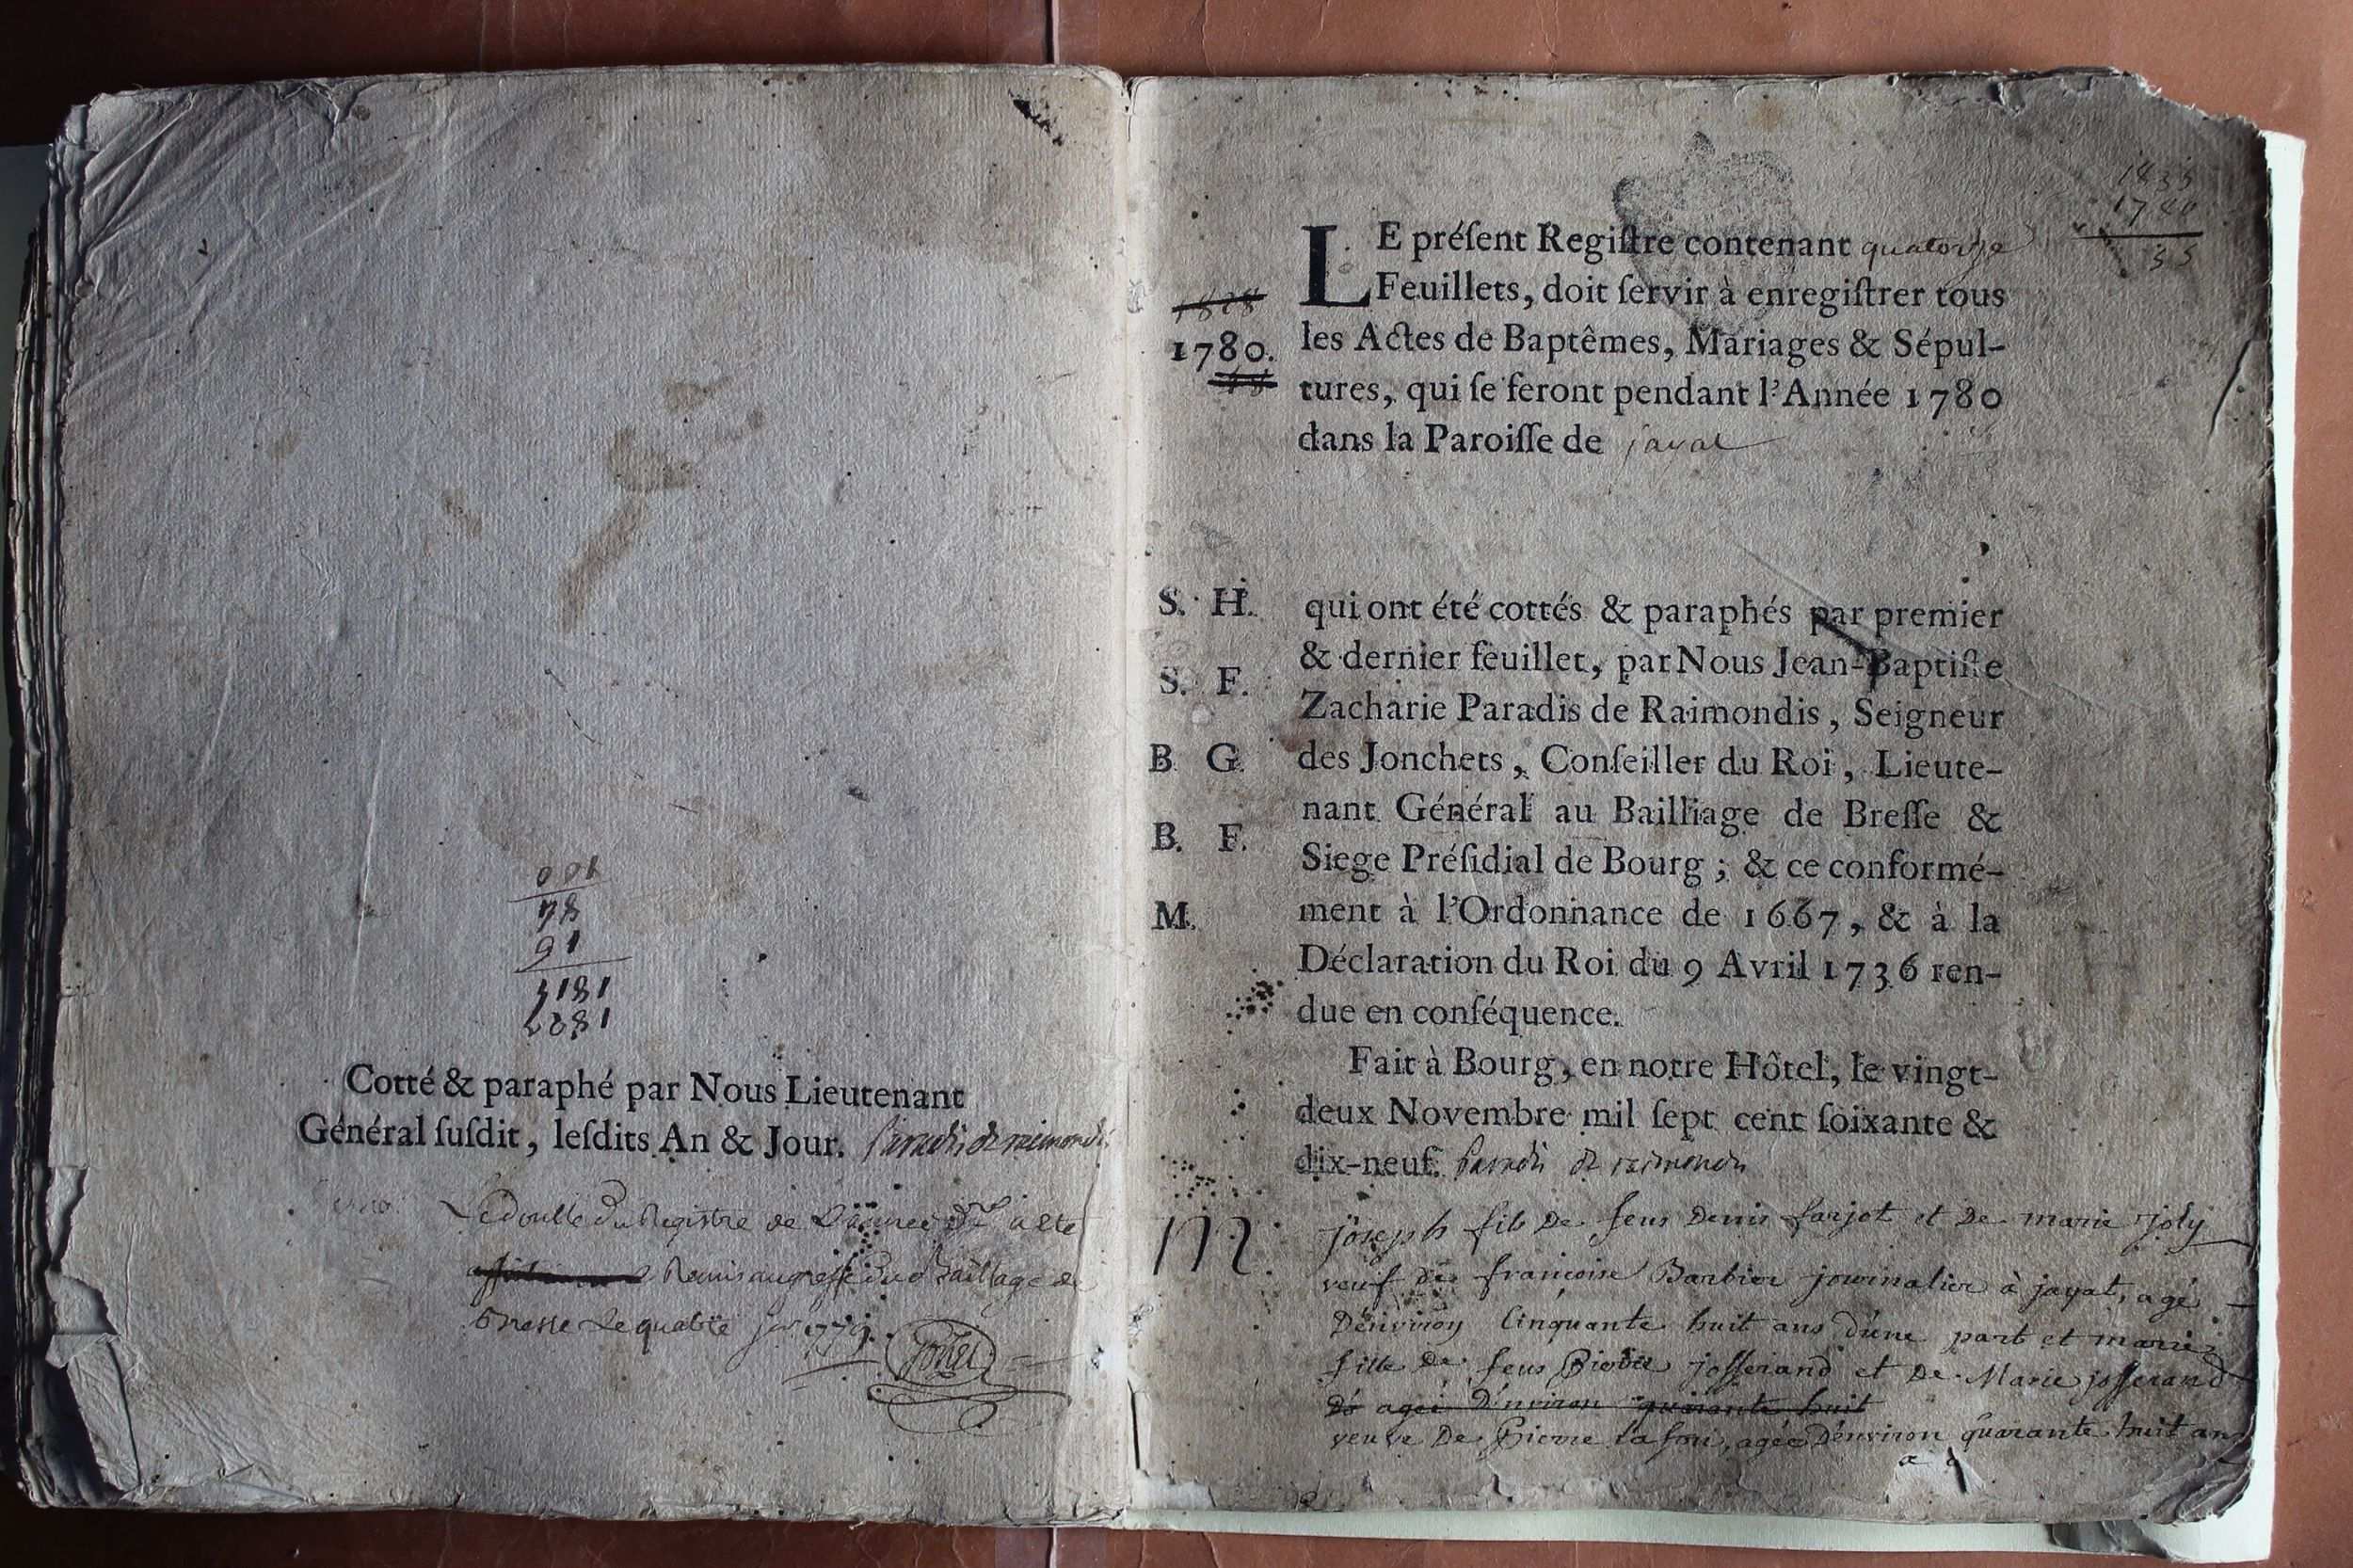 Cotté & paraphé par Nous Lieutenant
Général ſuſdit, leſdits An & Jour. Paradis de raimondis
Le double du Registre de L'année a été
Remis au greffe du Bailliage de
Bresse Le quatre jer 1779.
1835
1780
55
LE préſent Regiſtre contenant quatorze
Feuillets, doit ſervir à enregiſtrer tous
1828
1780. les Actes de Baptêmes, Mariages & Sépul-
48 tures, qui ſe feront pendant l'Année 1780
dans la Paroiſſe de jayat
S. H. qui ont été cottés & paraphés par premier
& dernier feuillet, par Nous Jean-Baptiſte
S. F. Zacharie Paradis de Raimondis, Seigneur
B. G. des Jonchets, Conſeiller du Roi, Lieute-
nant Général au Bailliage de Breſſe &
B. F. Siege Préſidial de Bourg; & ce conformé-
M. ment à l'Ordonnance de 1667, & à la
Déclaration du Roi du 9 Avril 1736 ren-
due en conſéquence.
Fait à Bourg, en notre Hôtel, le vingt-
deux Novembre mil ſept cent ſoixante &
dix-neuf. Paradis de raimondis
M. joseph fils De feus Denis farjot et De marie joly
veuf de francoise Barbier journalier à jayat, agé
D'environ Cinquante huit ans d'une part et marie
fille De feus Pierre josserand et De Marie josserand
agée D'environ quarante huit
veuve De Pierre, agée D'environ quarante huit an